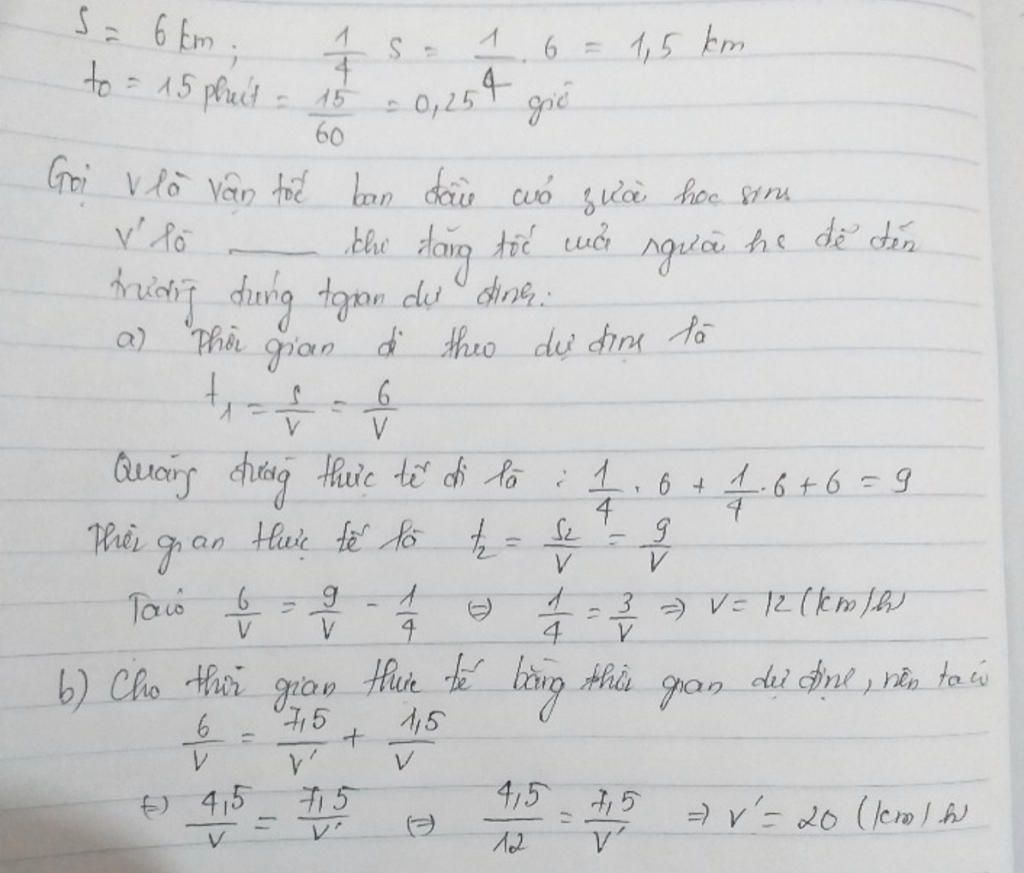 S = 6 km ; 1/4 S = 1/4 . 6 = 1,5 km
t0 = 15 phút = 15/60 = 0,25 giờ
Gọi v là vận tốc ban đầu của học sinh
v' là ___ khi tăng tốc của người hs để đến
trường đúng tgian dự định.
a) Thời gian đi theo dự định là
t1 = s/v = 6/v
Quãng đường thực tế đi là : 1/4 . 6 + 1/4 . 6 + 6 = 9
Thời gian thực tế là t2 = s2/v = 9/v
Ta có 6/v = 9/v - 1/4 <=> 1/4 = 3/v => v = 12 (km/h)
b) Cho thời gian thực tế bằng thời gian dự định, nên ta có
6/v = 7,5/v' + 1,5/v
<=> 4,5/v = 7,5/v' <=> 4,5/12 = 7,5/v' => v' = 20 (km/h